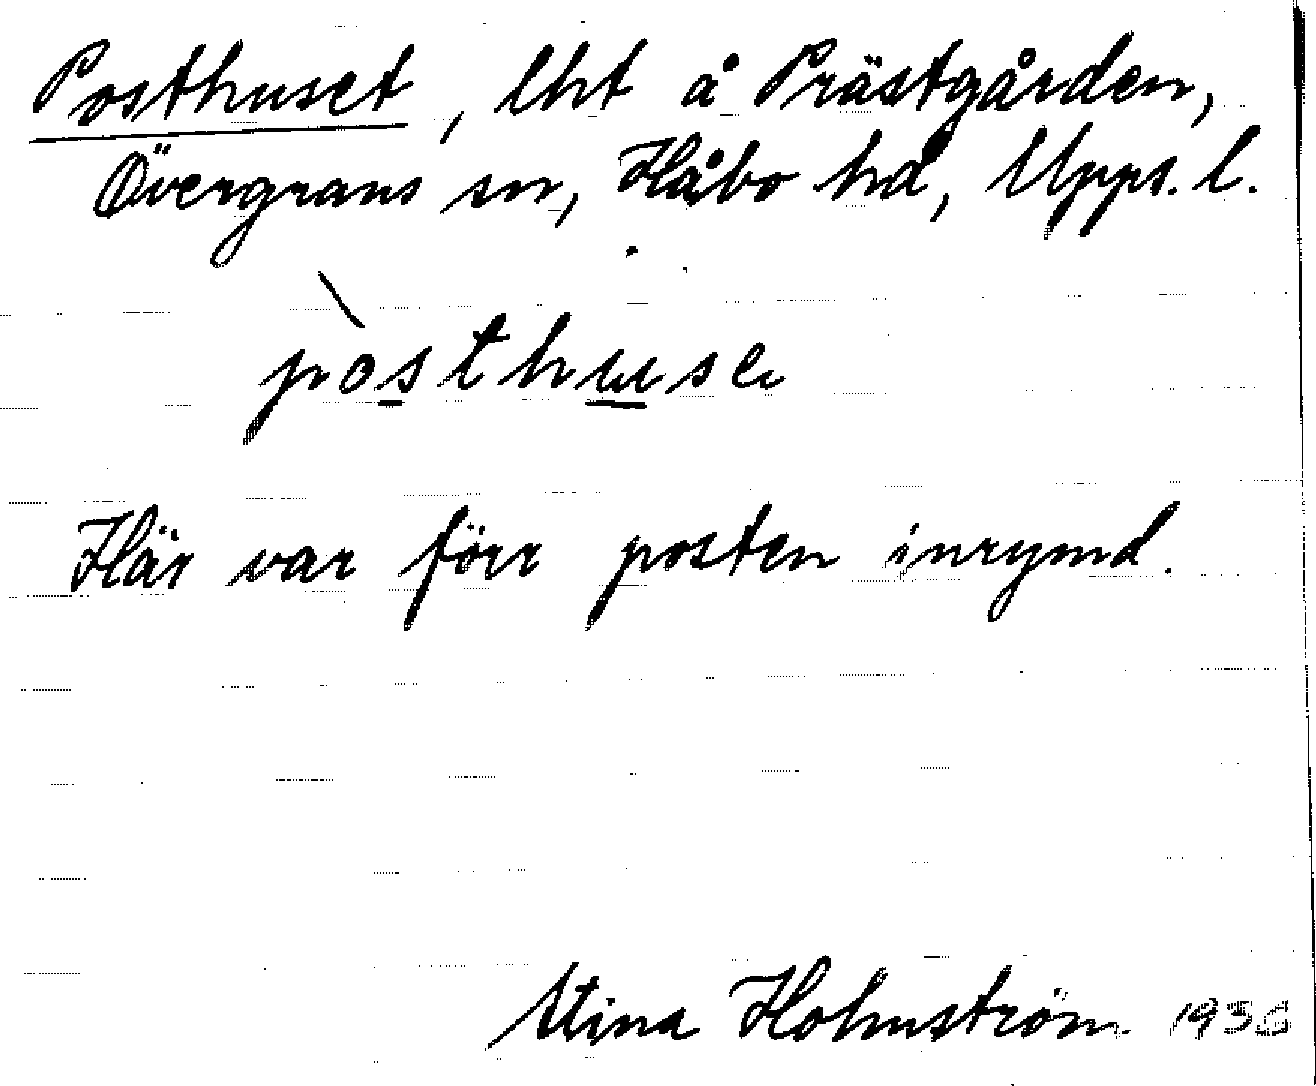 Posthuset, lht å Prästgården,
Övergrans sn, Håbo hd, Upps. l.
pòsthuse
Här var förr posten inrymd.
Stina Holmström 1936